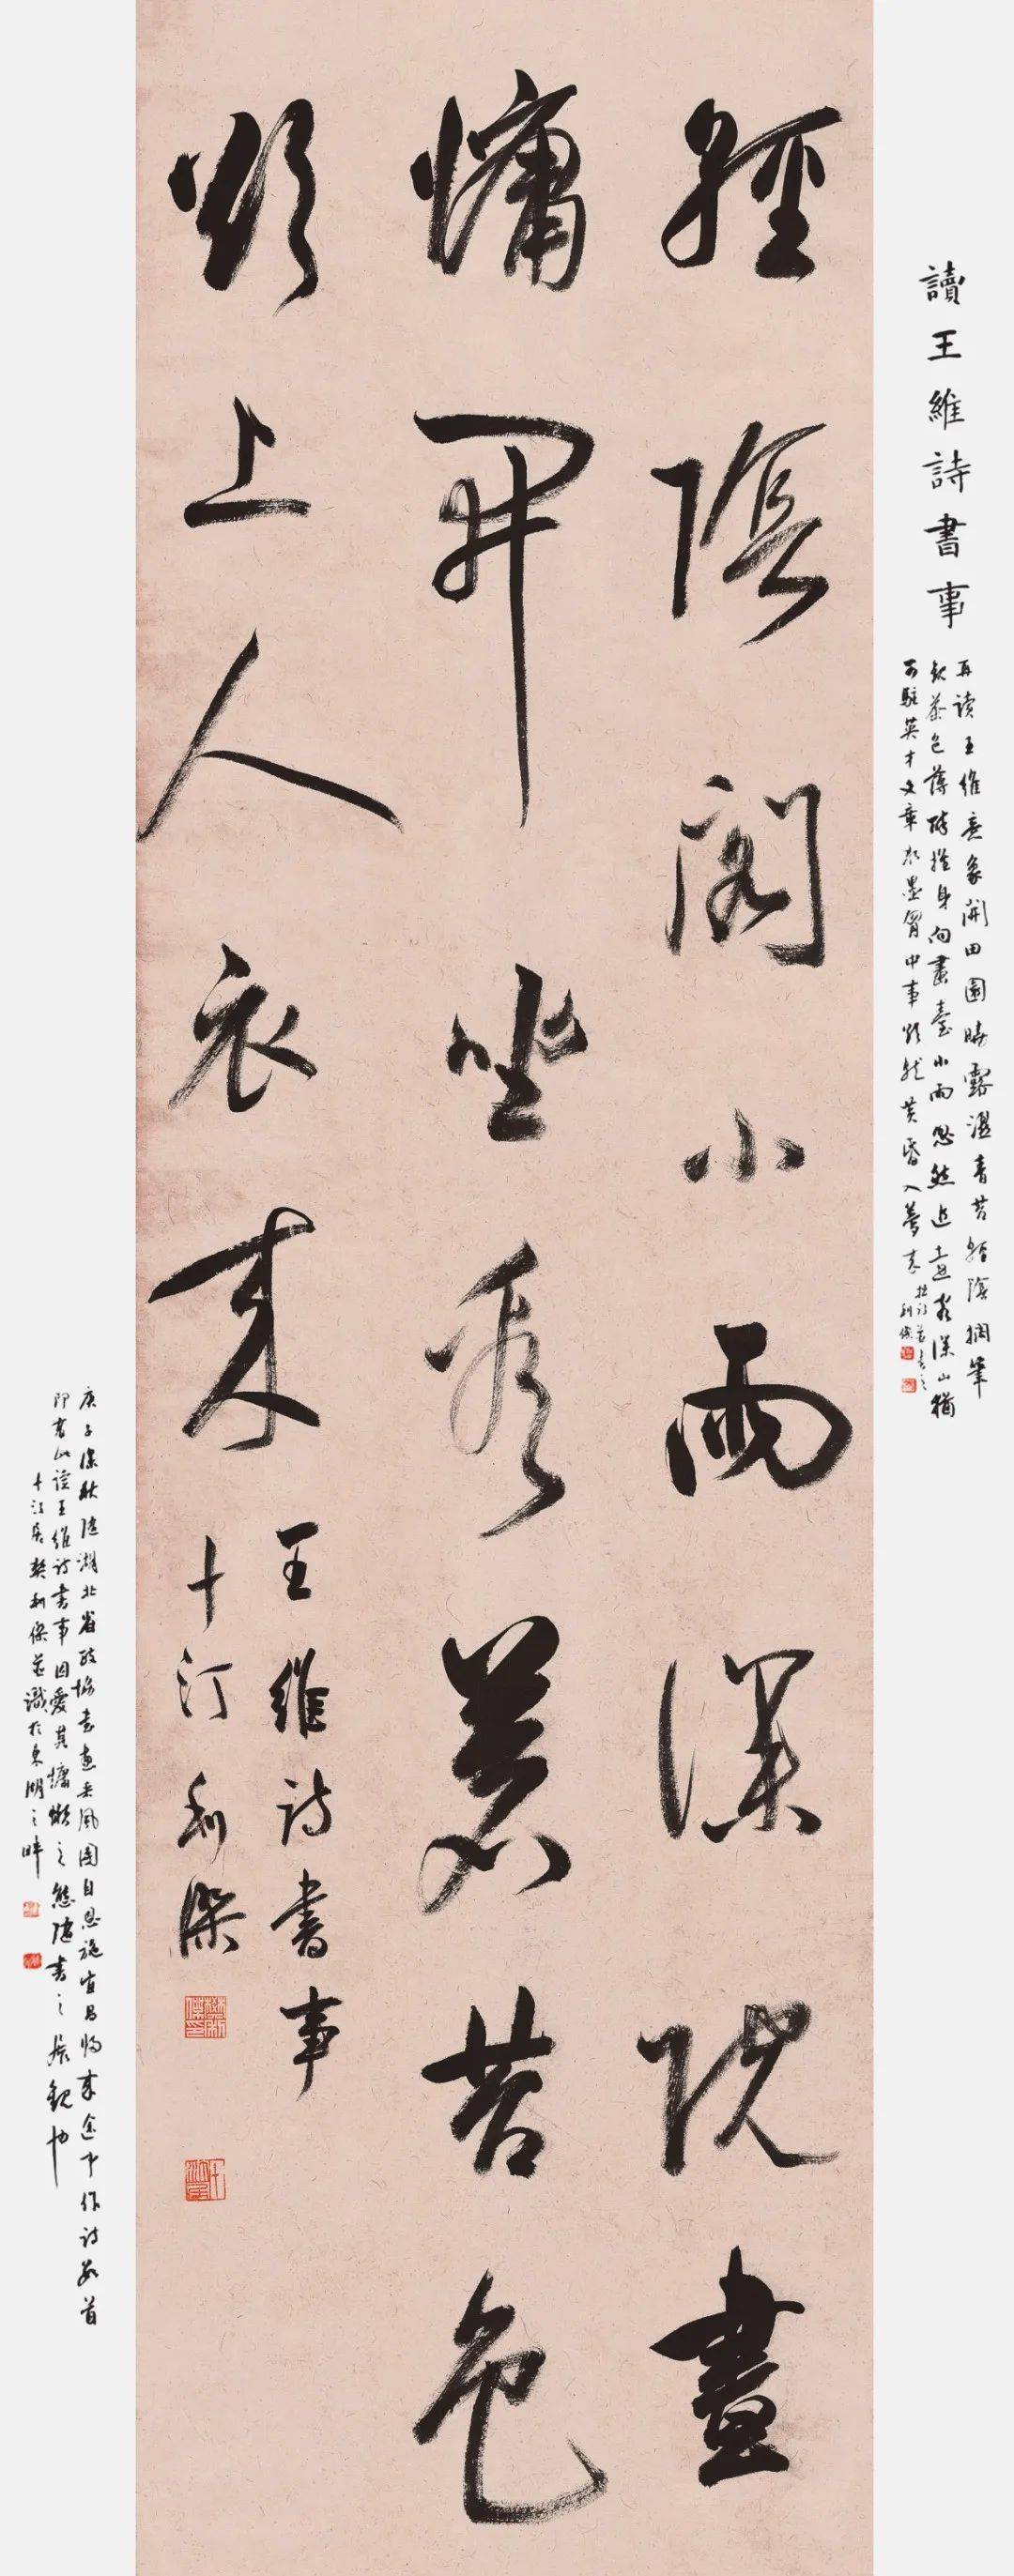 讀王維詩書事
再讀王維意象開田園曉露濕青苔輕陰擱筆
飲茶色薄醉身向畫臺小雨忽然近看深山猶
可駐英才文章水墨胸中事黃昏入夢來
利傑
輕陰閣小雨深院晝
慵開坐看蒼苔色
欲上人衣來
王維詩書事
十汀利傑
庚子深秋隨湖北省政協書畫采風團自恩施宜昌歸來途中作詩數首
即有此讀王維詩書事因愛其慵懶之態隨書之展觀也
十汀居樊利傑並識於東湖之畔